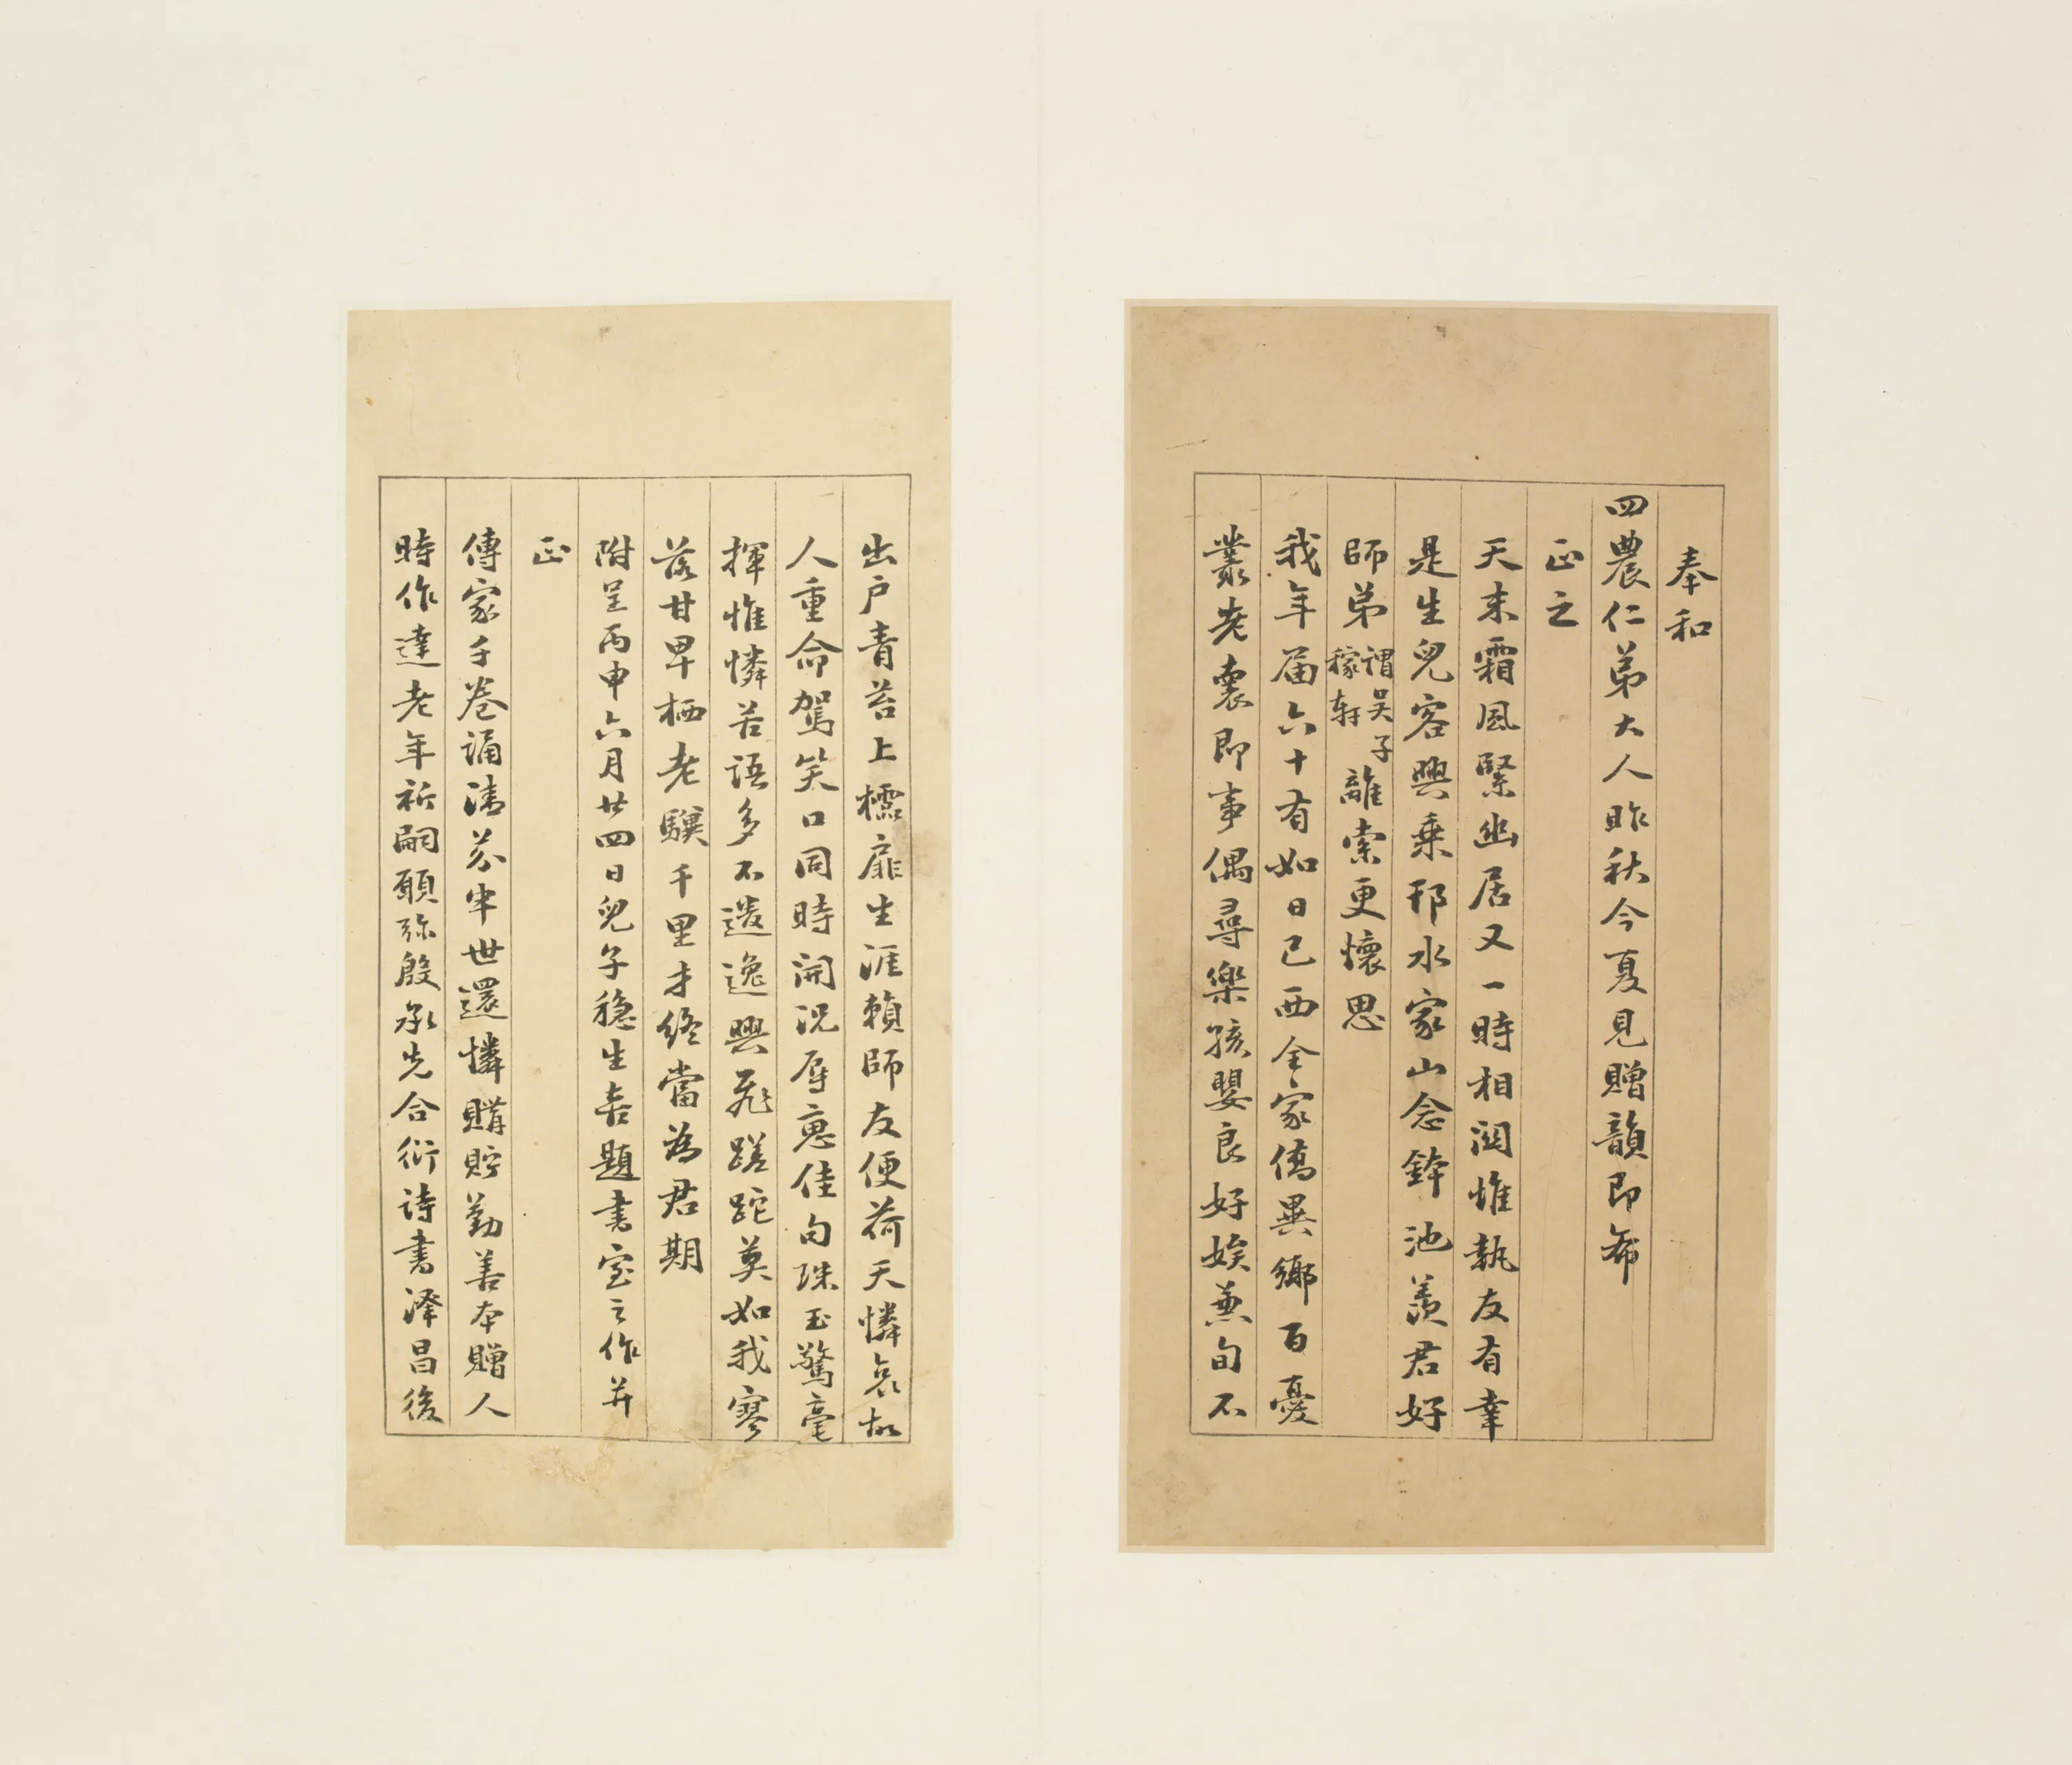 奉和
四農仁弟大人昨秋今夏見贈韻即希
正之
天末霜風緊幽居又一時相闊惟執友有幸
是生兒客興乘邗水家山念鉢池羨君好
師弟謂吳子稼軒離索更懷思
我年届六十有如日已西全家僑異鄉百憂
叢老裏即事偶尋樂孩嬰良好娭兼旬不
出戶青苔上櫺扉生涯賴師友便荷天憐哀故
人重命駕笑口同時開況辱惠佳句珠玉驚毫
揮惟憐苦語多不遺逸興飛蹉跎莫如我寥
落甘卑栖老驥千里才終當為君期
附呈丙申六月廿四日兒子穩生喜題書室之作并
正
傳家千卷誦清芬半世還憐購貯勤善本贈人
時作達老年祈嗣願彌殷承先合衍詩書澤昌後